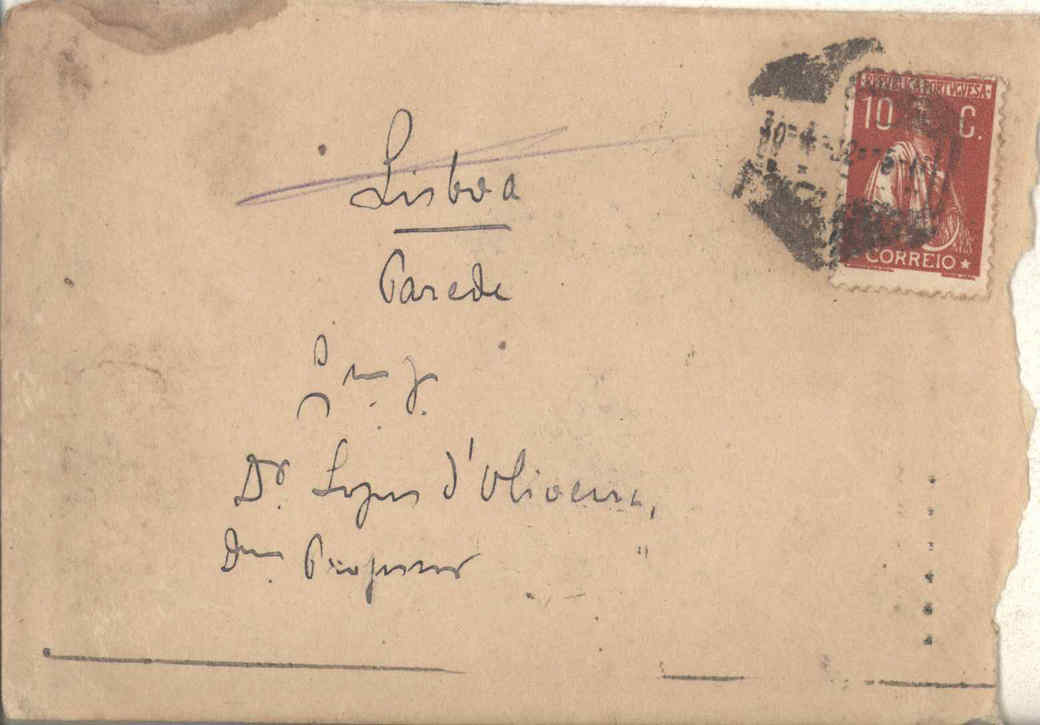 REPUBLICA PORTUGUESA
10 C.
CORREIO
Lisboa
Parede
Dr. Lopes d'Oliveira,
Professor